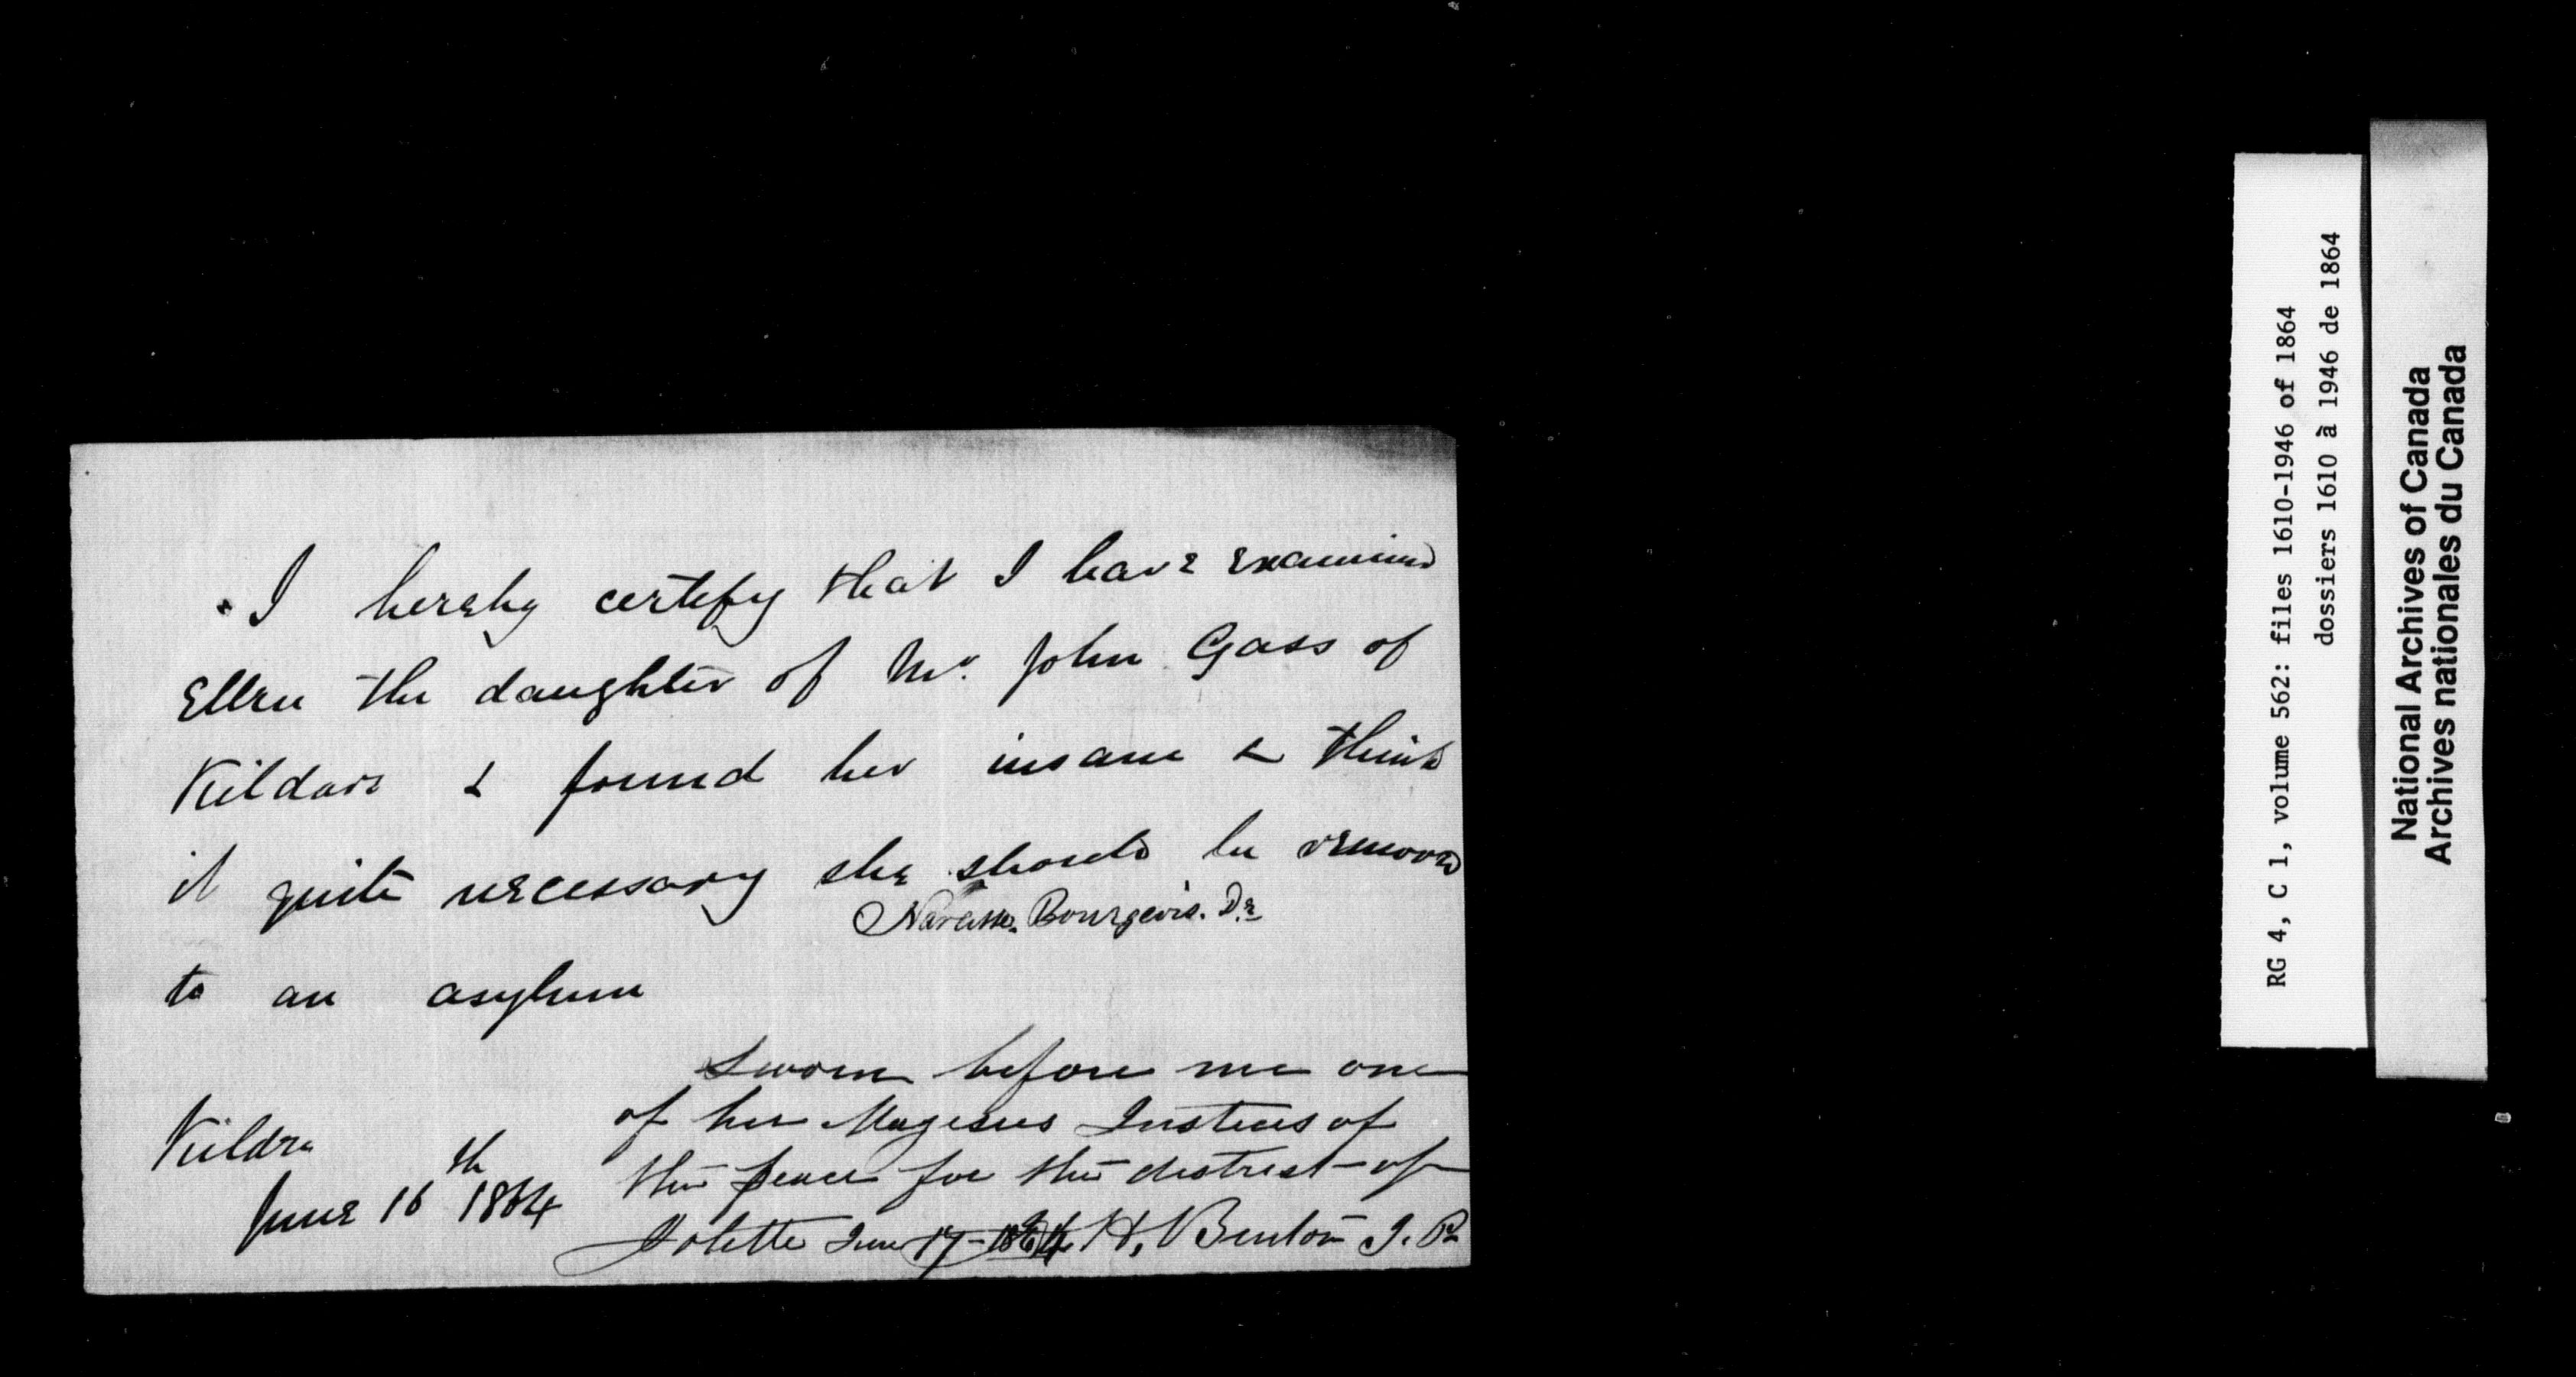 I hereby certify that I have examined
Ellen the daughter of Mr. John Gass of
Kildare & found her insane & think
it quite necessary she should be removed
Narcisse Bourgeois. Dr
to an asylum
Sworn before me one
of her Magesties Justices of
the peace for the district of
Joliette June 17 - 1864 H, Benton J. P.
Kildre
June 16th 1864
RG 4, C 1, volume 562: files 1610-1946 of 1864
dossiers 1610 à 1946 de 1864
National Archives of Canada
Archives nationales du Canada